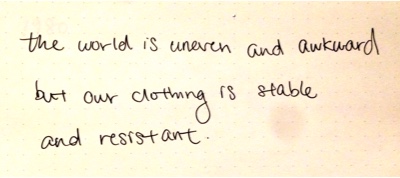 the world is uneven and awkward
but our clothing is stable
and resistant.